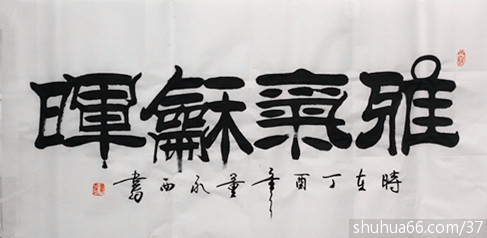 雅氣龢暉
時在丁酉年董永西書
shuhua66.com/37